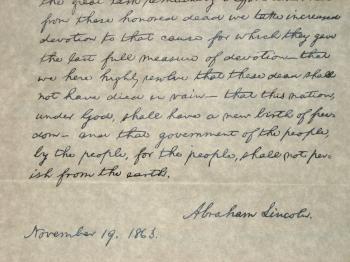 the great task remaining
from these honored dead we take increased
devotion to that cause for which they gave
the last full measure of devotion - that
we here highly resolve that these dead shall
not have died in vain - that this nation,
under God, shall have a new birth of free-
dom - and that government of the people,
by the people, for the people, shall not per-
ish from the earth.
Abraham Lincoln.
November 19, 1863.